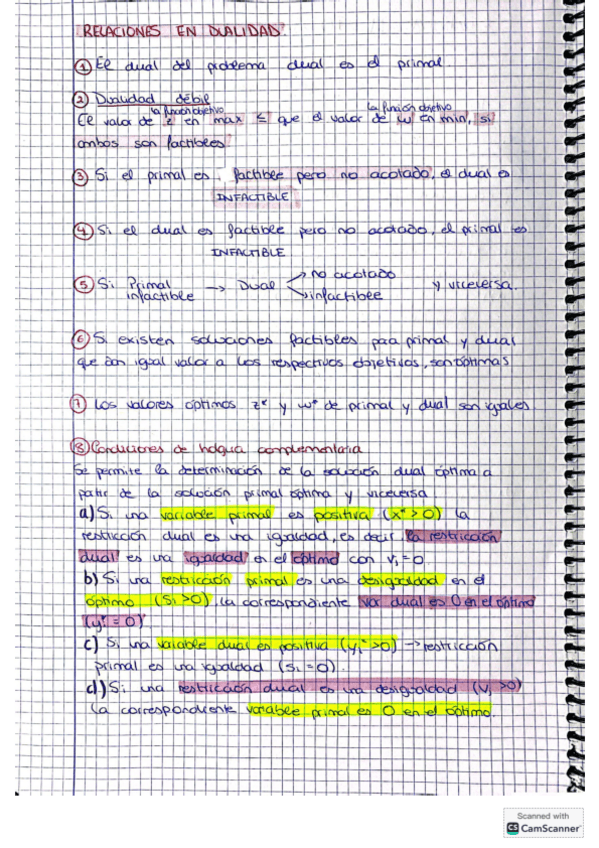 RELACIONES EN DUALIDAD.
① El dual del problema dual es el primal.
② Dualidad débil
la función objetivo la función objetivo
El valor de z en max ≤ que el valor de w en min, si
ambos son factibles
③ Si el primal es factible pero no acotado, el dual es
INFACTIBLE
④ Si el dual es factible pero no acotado, el primal es
INFACTIBLE
no acotado
⑤ Si Primal → Dual y viceversa.
infactible infactible
⑥ Si existen soluciones factibles para primal y dual
que dan igual valor a los respectivos objetivos, son óptimas
⑦ Los valores óptimos z* y w* de primal y dual son iguales.
⑧ Condiciones de holgura complementaria
Se permite la determinación de la solución dual óptima a
partir de la solución primal óptima y viceversa
a) Si una variable primal es positiva (x*>0) la
restricción dual es una igualdad, es decir, la restricción
dual es una igualdad en el óptimo con vj=0
b) Si una restricción primal es una desigualdad en el
óptimo (Si>0), la correspondiente var dual es 0 en el óptimo
(yi*=0)
c) Si una variable dual es positiva (yi*>0) → restricción
primal es una igualdad (si=0).
d) Si una restricción dual es una desigualdad (vj>0)
la correspondiente variable primal es 0 en el óptimo.
Scanned with
CS CamScanner